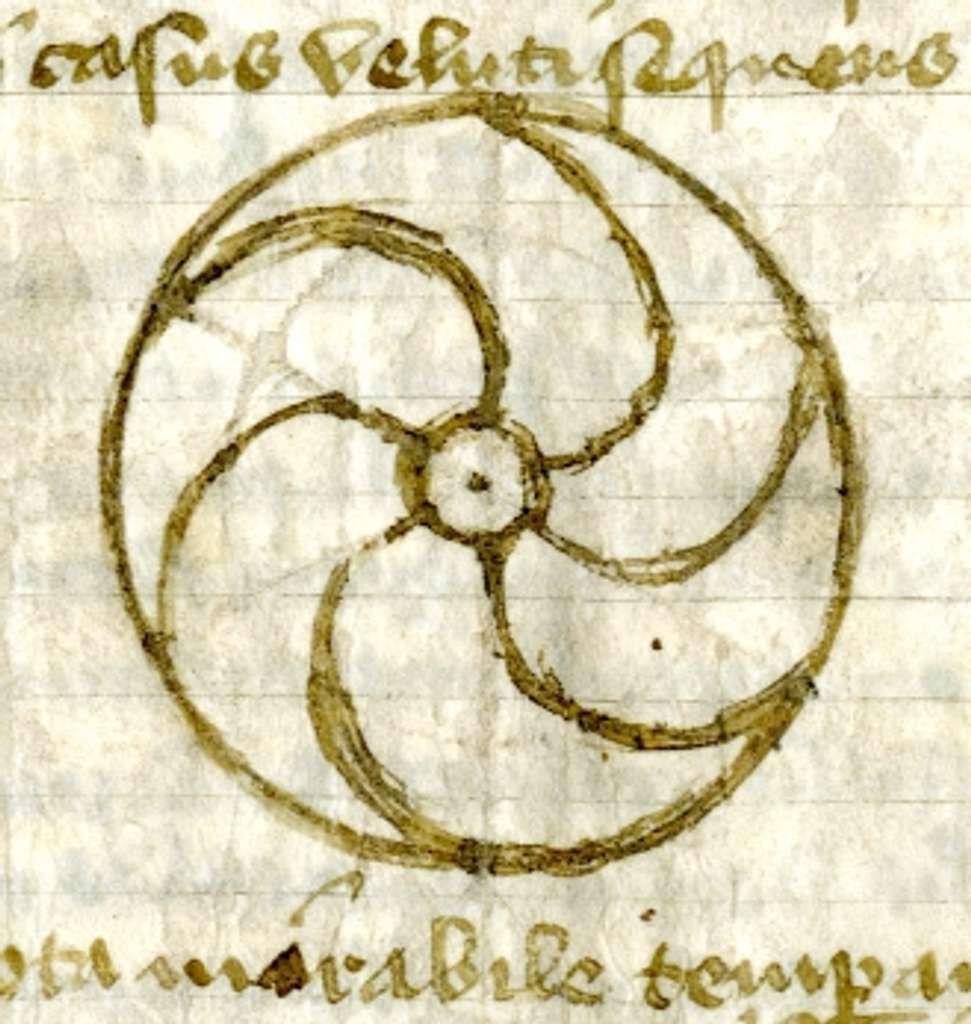 casus veluti sequens
ota mirabile tempar